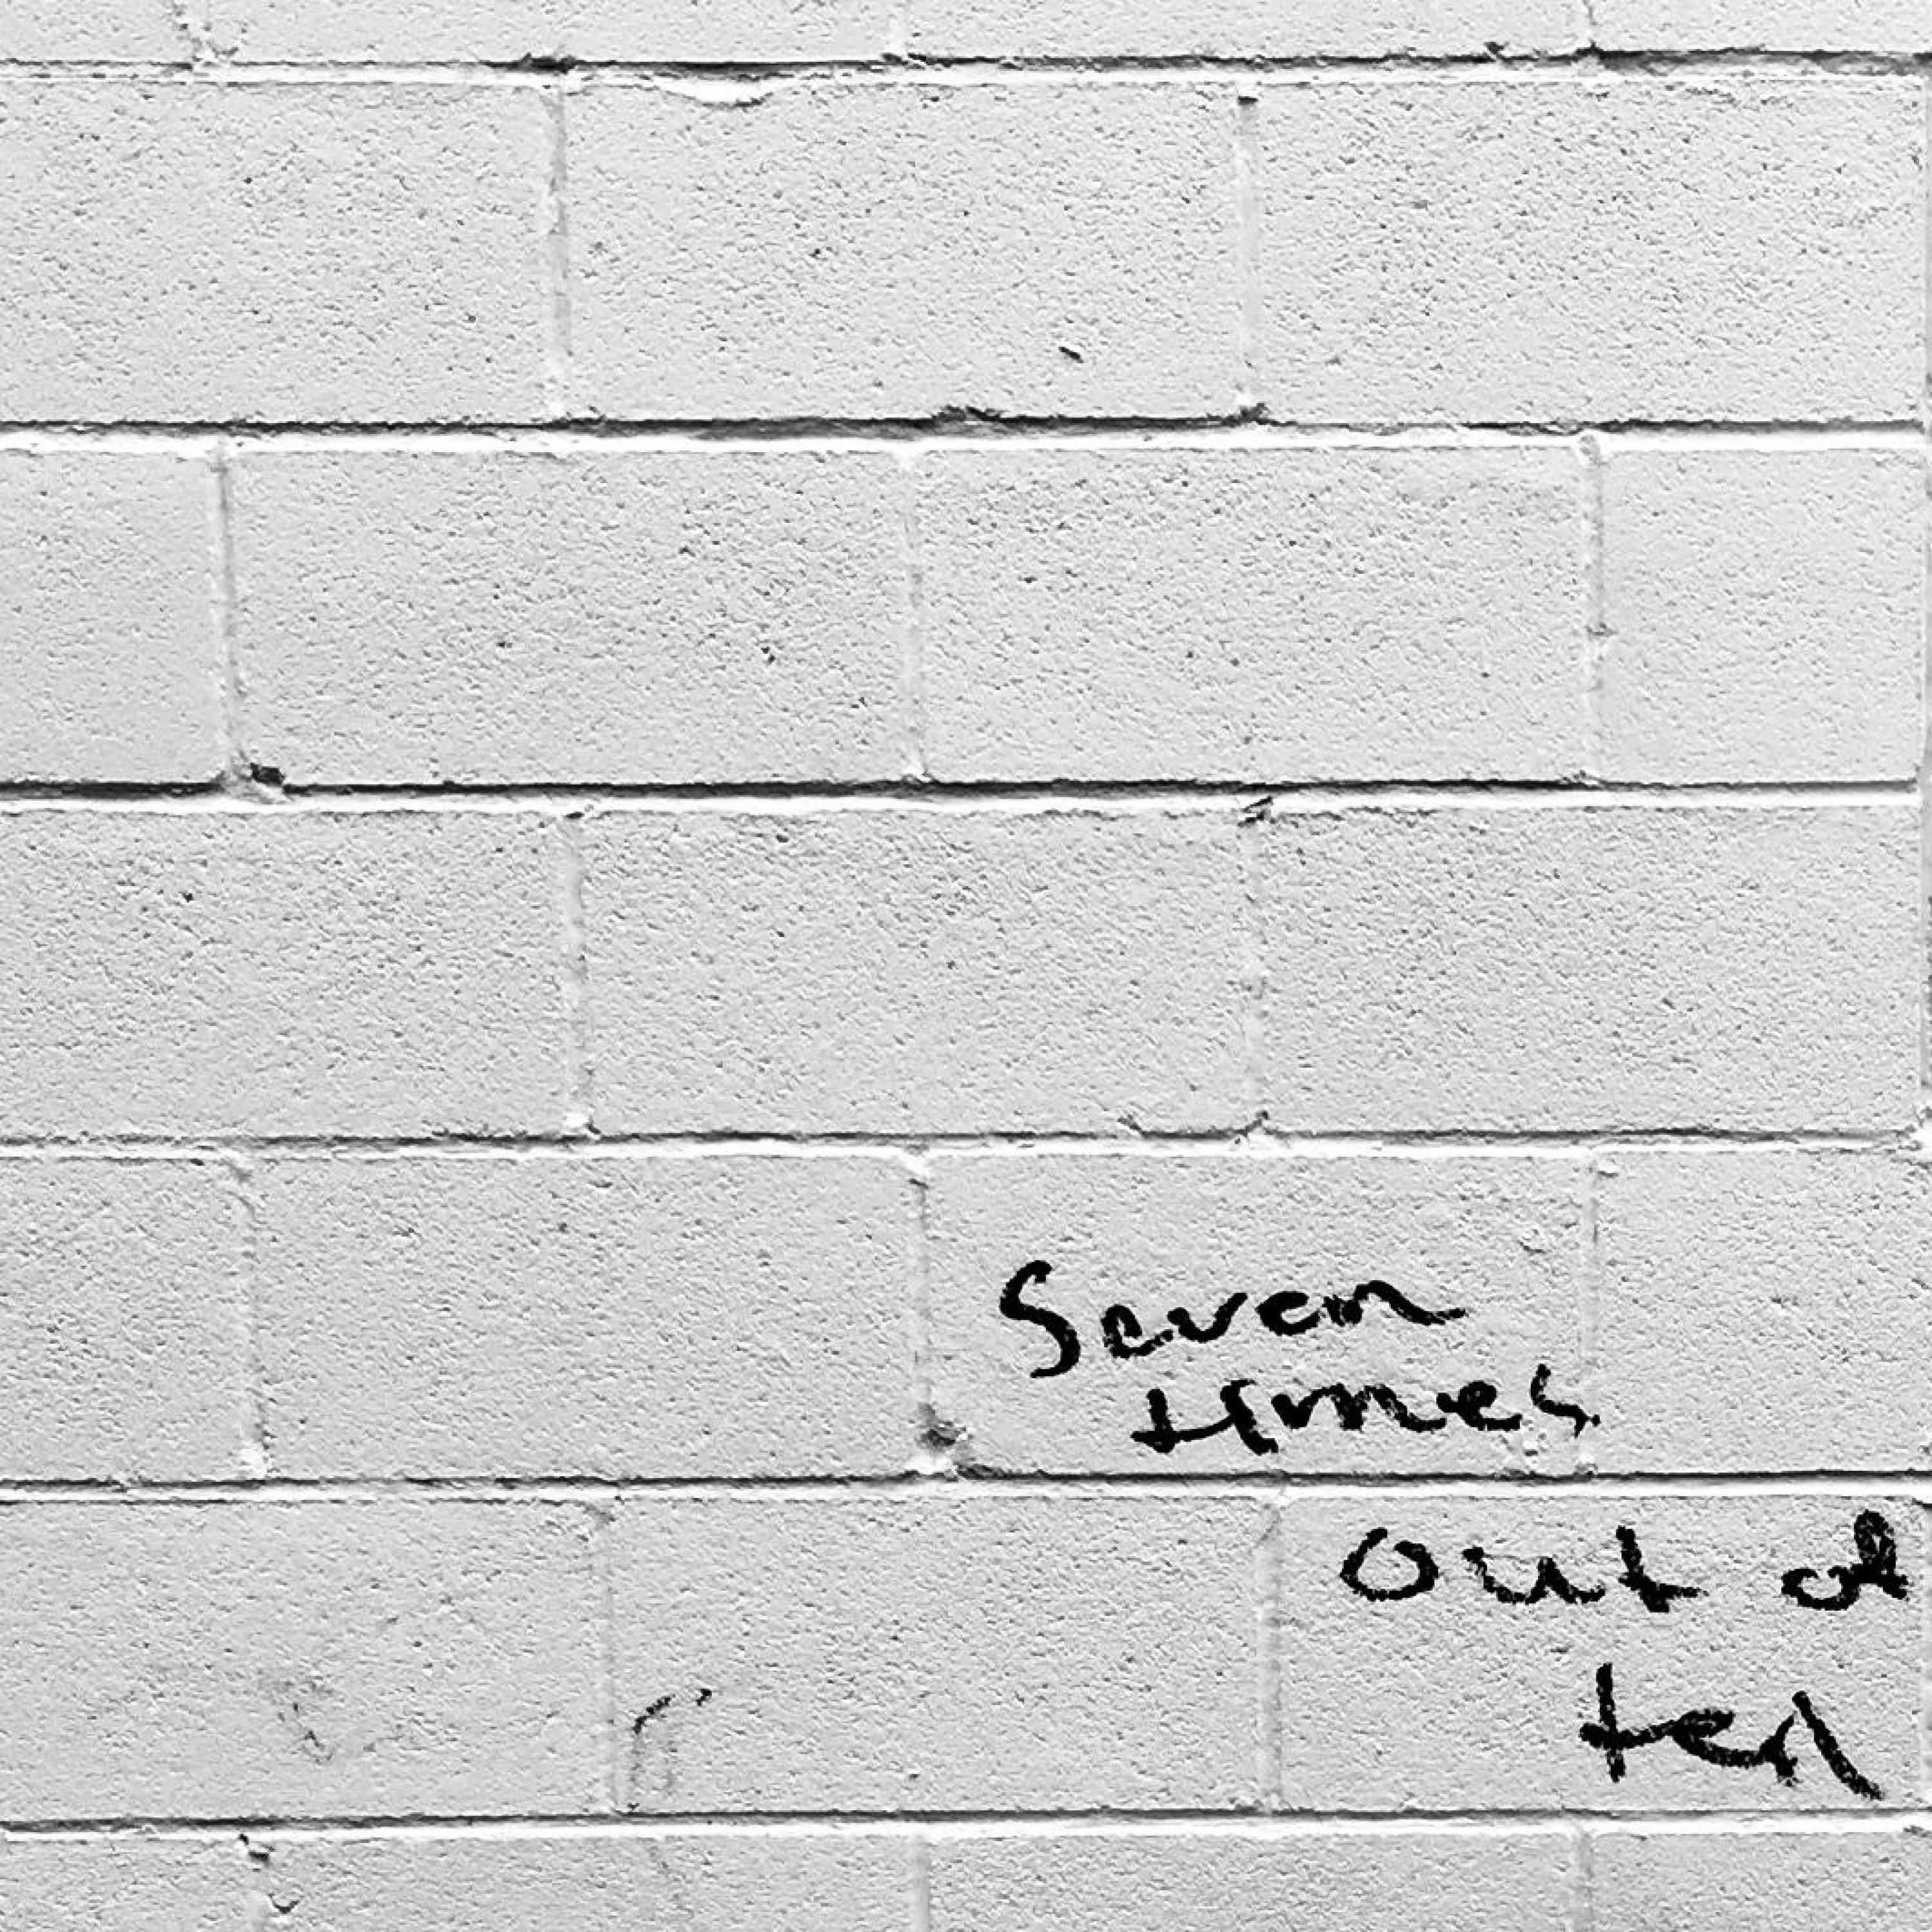 Seven
times
out of
ten